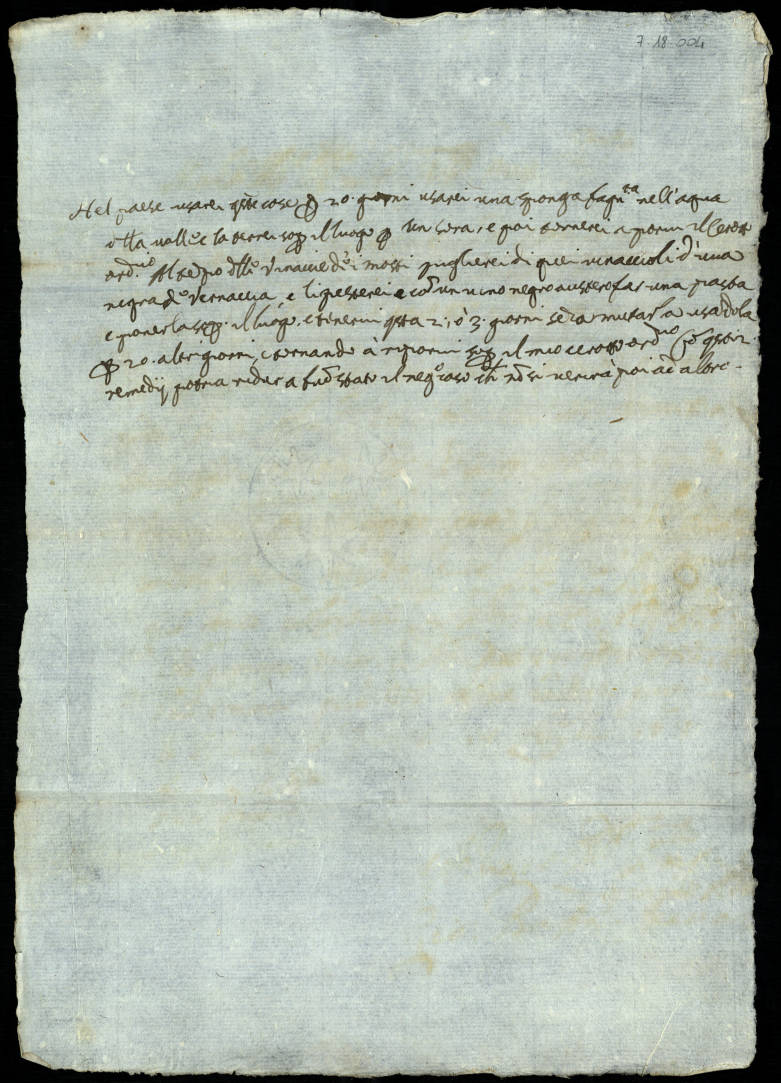 7-18-004
Nel paese usarei q.ste cose p 20. giorni usarei una sponga bagn.ta nell'aqua
la terrei sop. il luogo p un sera, e poi tornerei a porvi il Cerotto
ord.rio Al tempo d vinaccie di mosti piglierei di quei vinaccioli d'uua
negra di vernaccia, e li pesterei e con un vino negro austero far una pasta
e ponerla sop. il luogo, e tenerui q.sta 2; ò 3. giorni seza mutarla usadola
p 20. altri giorni, e tornando à riporui sop il mio cerotto ord.rio Co q.sti 2.
remedij potria redur a buo stato il neg.o ch no si uenira poi ad altro.